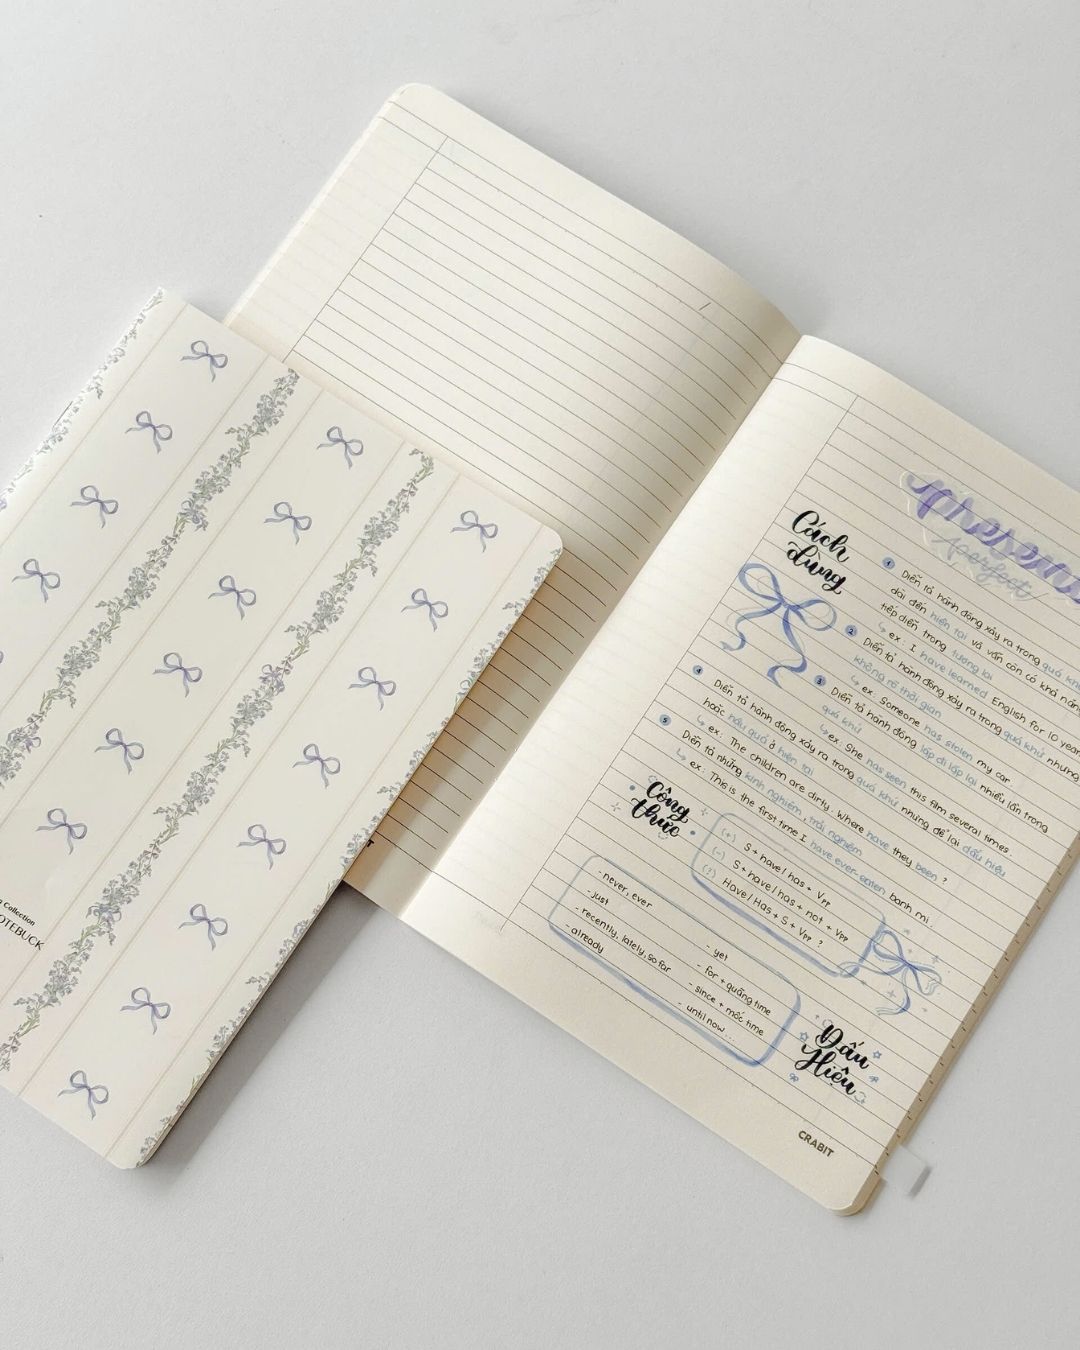 Present
perfect
Cách
dùng
1 Diễn tả hành động xảy ra trong quá
dài đến hiện tại và vẫn còn có khả năng
tiếp diễn trong tương lai
↳ ex: I have learned English for 10 years
2 Diễn tả hành động xảy ra trong quá khứ nhưng
không rõ thời gian
↳ ex: Someone has stolen my car.
3 Diễn tả hành động lặp đi lặp lại nhiều lần trong
quá khứ
↳ ex: She has seen this film several times.
4 Diễn tả hành động xảy ra trong quá khứ nhưng để lại dấu hiệu
hoặc hậu quả ở hiện tại
↳ ex: The children are dirty. Where have they been?
5 Diễn tả những kinh nghiệm, trải nghiệm
↳ ex: This is the first time I have ever eaten banh mi.
Công
thức
(+) S + have/has + Vpp
(-) S + have/has + not + Vpp
(?) Have/Has + S + Vpp ?
- never, ever
- just
- recently, lately, so far
- already
- yet
- for + quãng time
- since + mốc time
- until now...
Dấu
Hiệu
CRABIT
Collection
NOTEBUCK